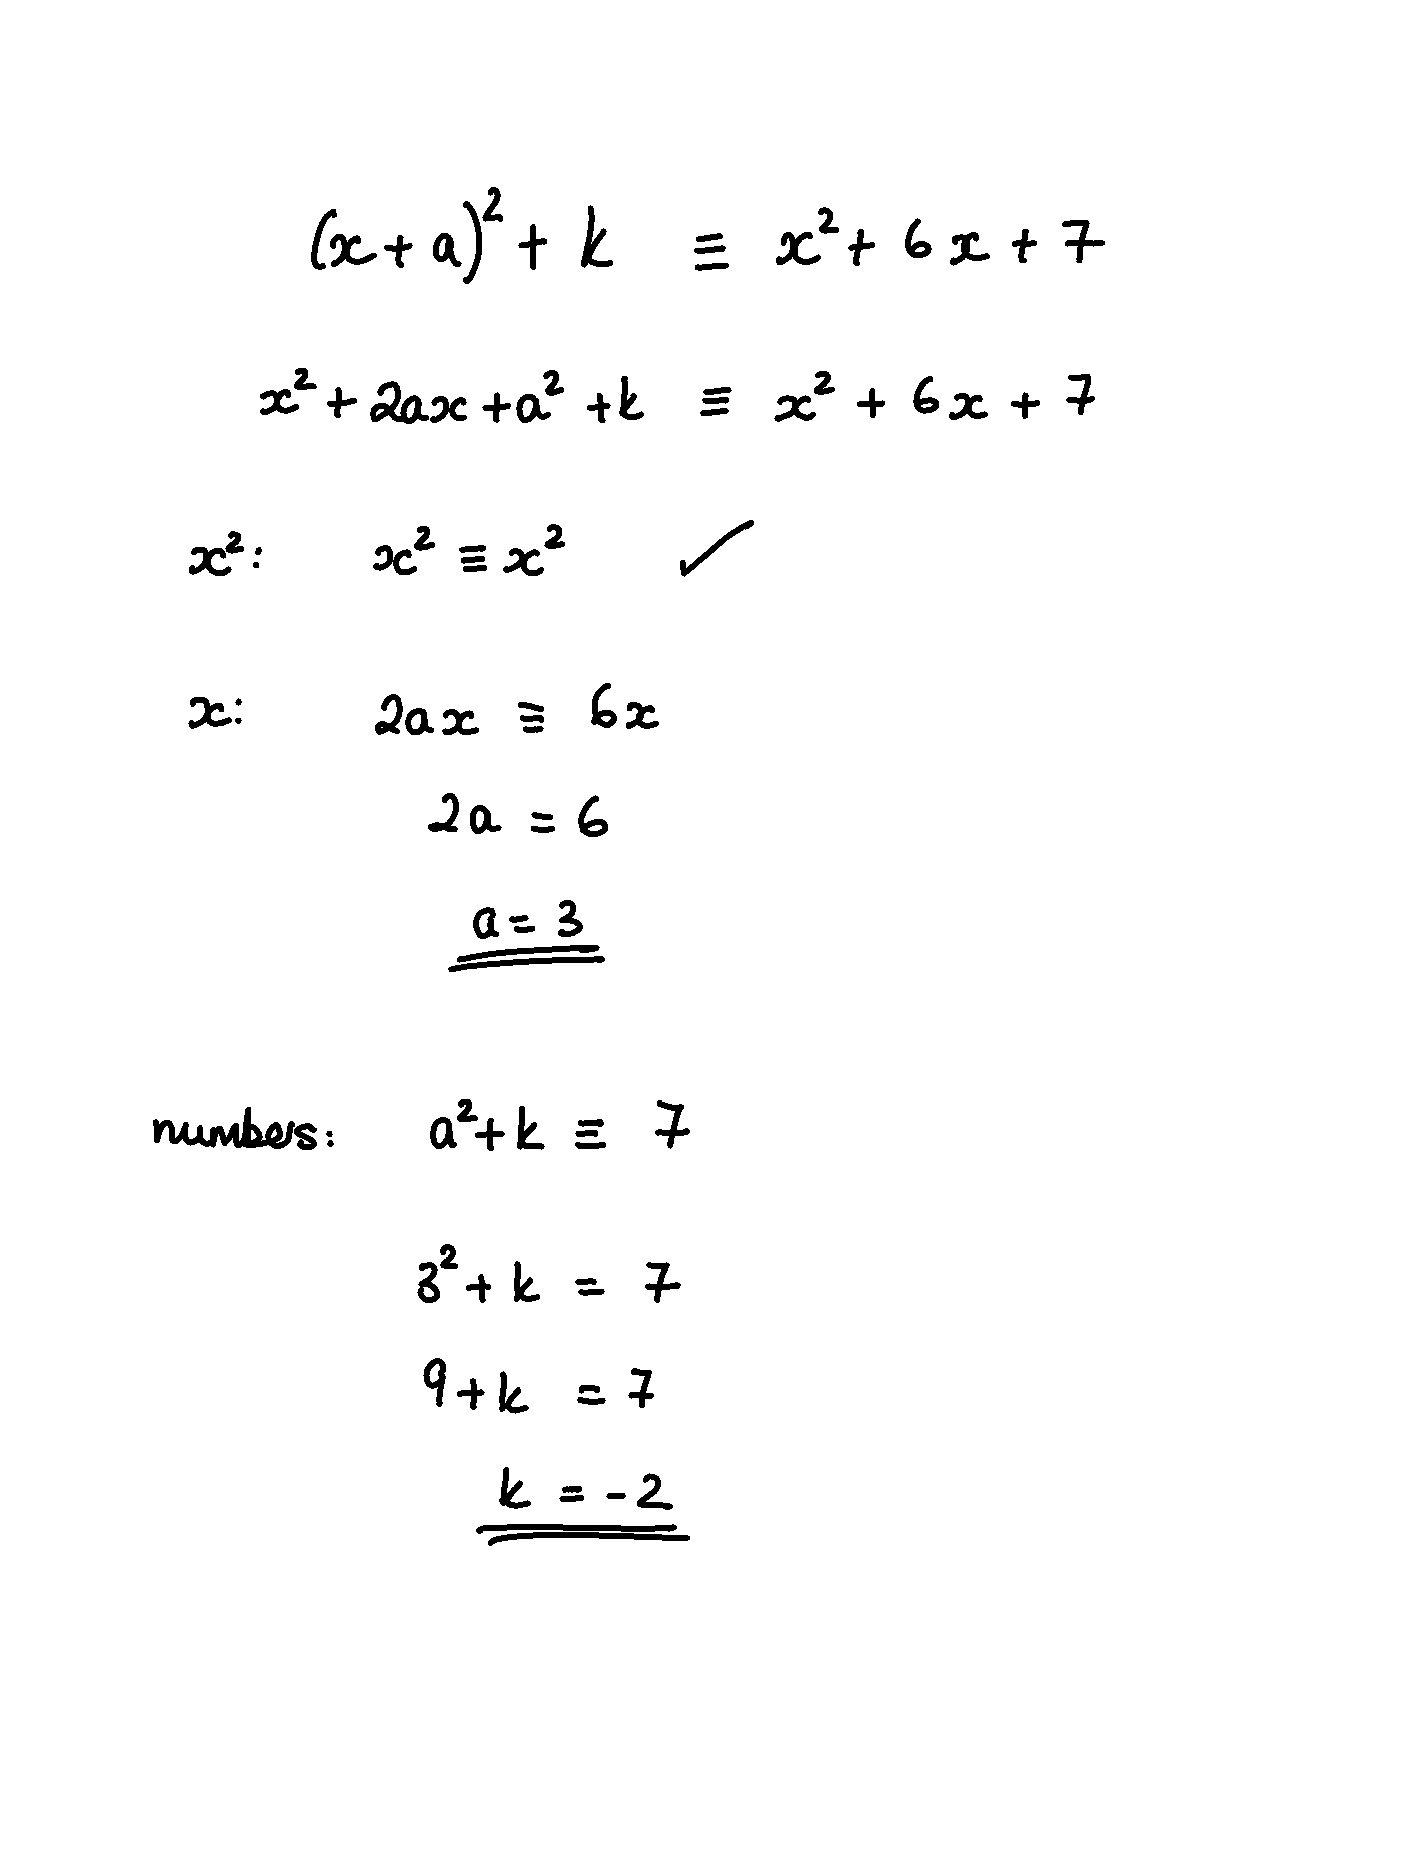 (x + a)² + k ≡ x² + 6x + 7
x² + 2ax + a² + k ≡ x² + 6x + 7
x²: x² ≡ x² ✓
x: 2ax ≡ 6x
2a = 6
a = 3
numbers: a² + k ≡ 7
3² + k = 7
9 + k = 7
k = -2